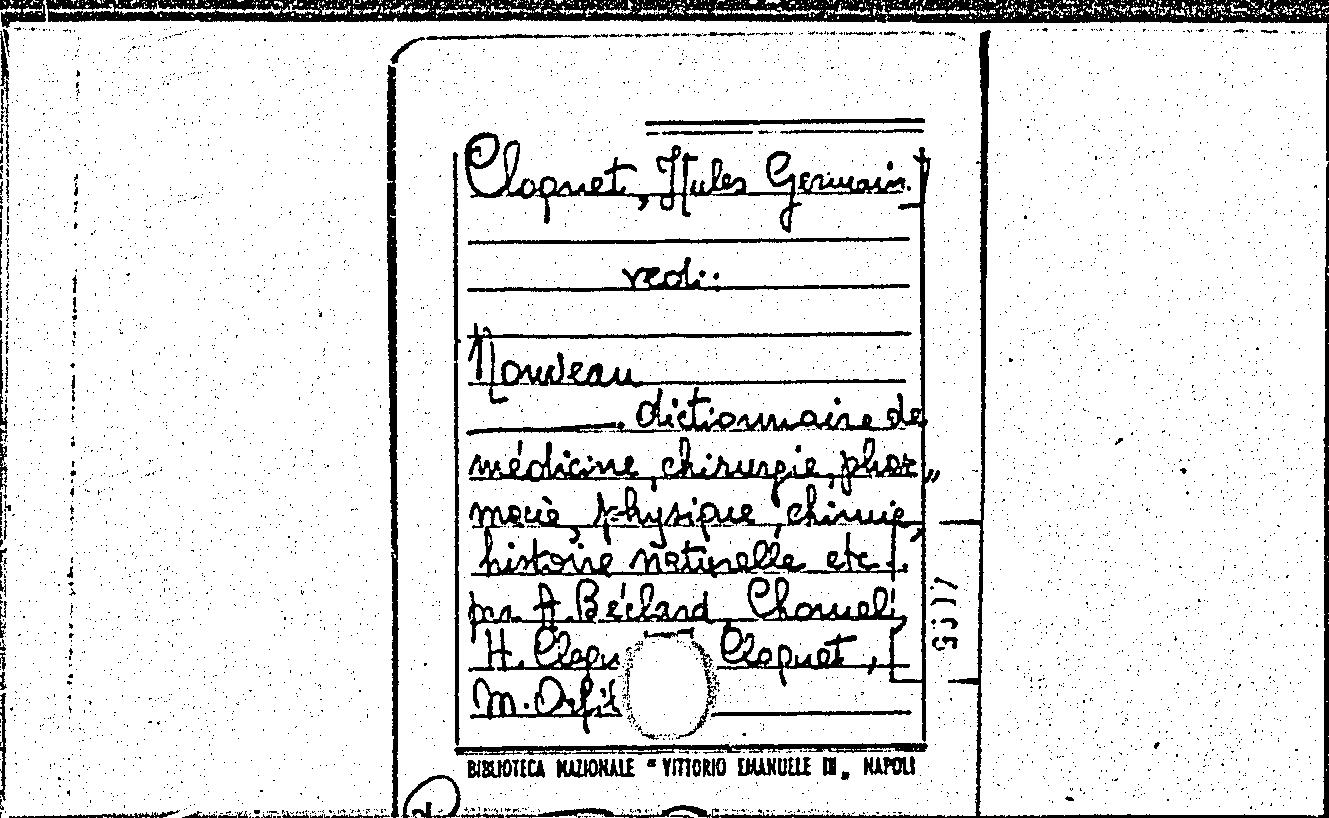 Cloquet, Jules Germain
vedi:
Nouveau
dictionnaire de
médicine, chirurgie, phar„
macie, physique, chimie,
histoire naturelle etc..
par A. Béclard, Chomel,
H. Cloqu Cloquet,
M. Orfil
BIBLIOTECA NAZIONALE "VITTORIO EMANUELE III„ NAPOLI